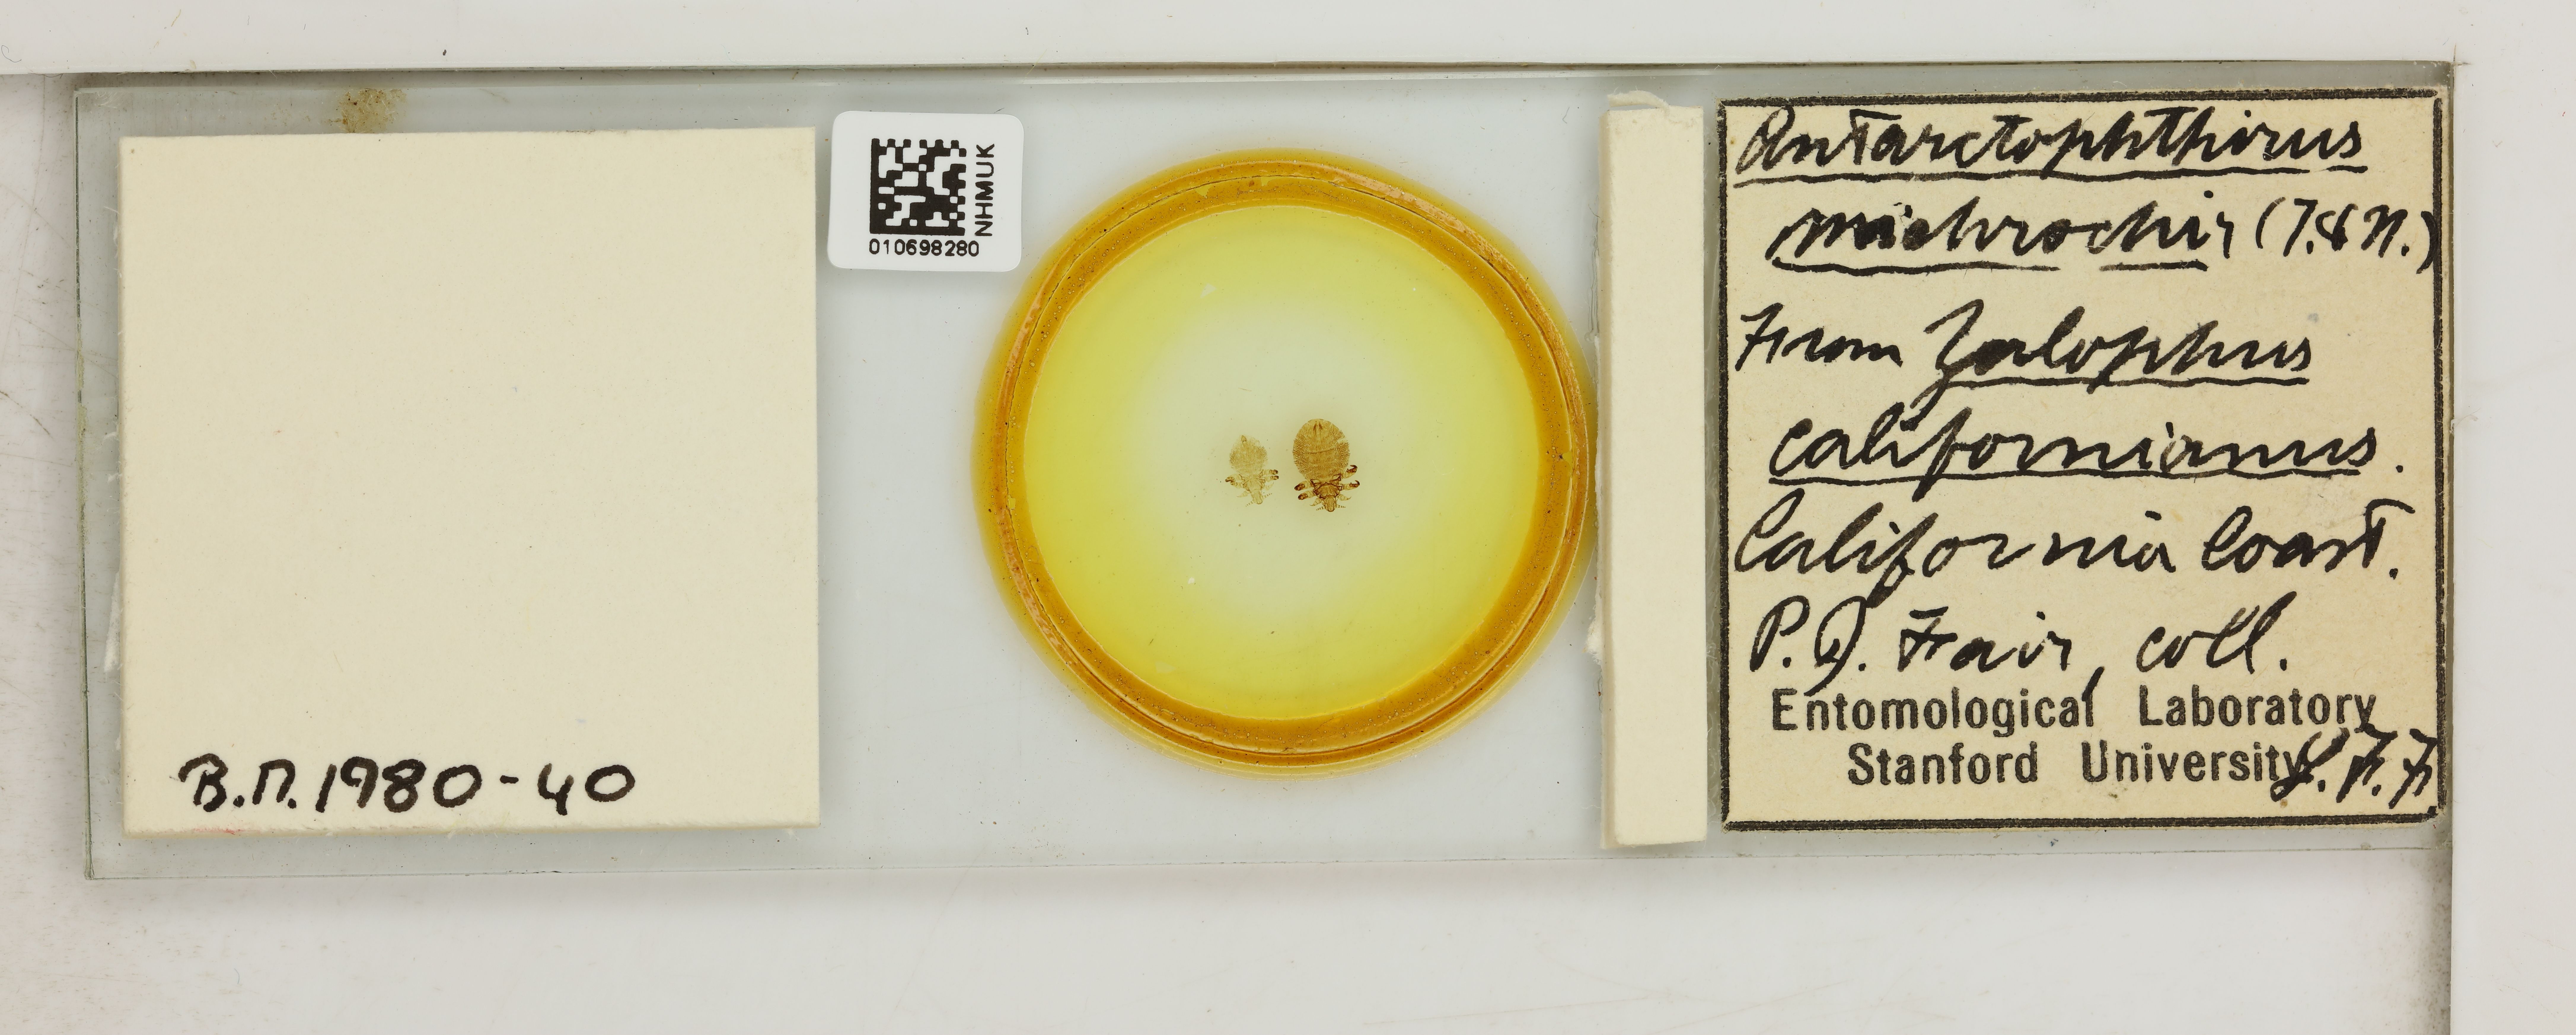 B.M.1980-40
NHMUK
010698280
Antarctophthirus
michrochir (T.&N.)
From Zalophus
californianus.
California Coast.
P.D. Fair, coll.
Entomological Laboratory
Stanford University